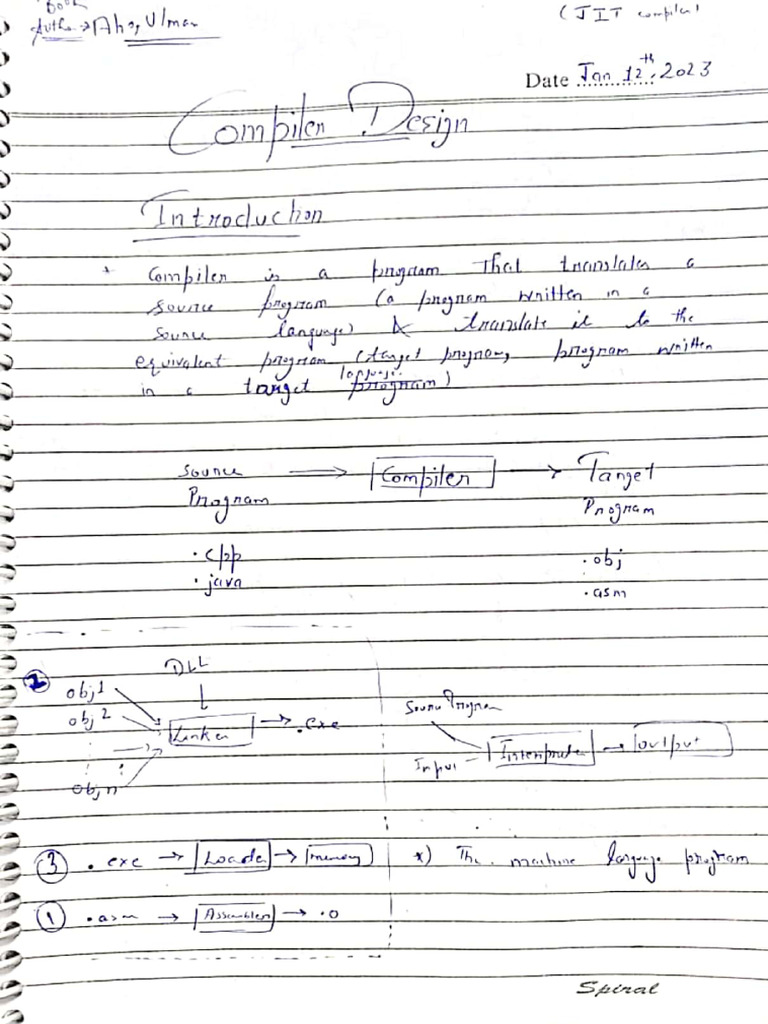 Book
Author → Aho, Ulman
(JIT compiler)
Date Jan 12th, 2023
Compiler Design
Introduction
* Compiler is a program that translates a
source program (a program written in a
source language) & translate it to the
equivalent program (target program, program written
language
in a target program)
Source → Compiler → Target
Program Program
.cpp .obj
.java .asm
2 DLL
obj1
obj2 Linker → .exe
objn
Source Program
Input Interpreter → Output
3 .exe → Loader → memory
*) The machine language program
1 .asm → Assembler → .o
Spiral